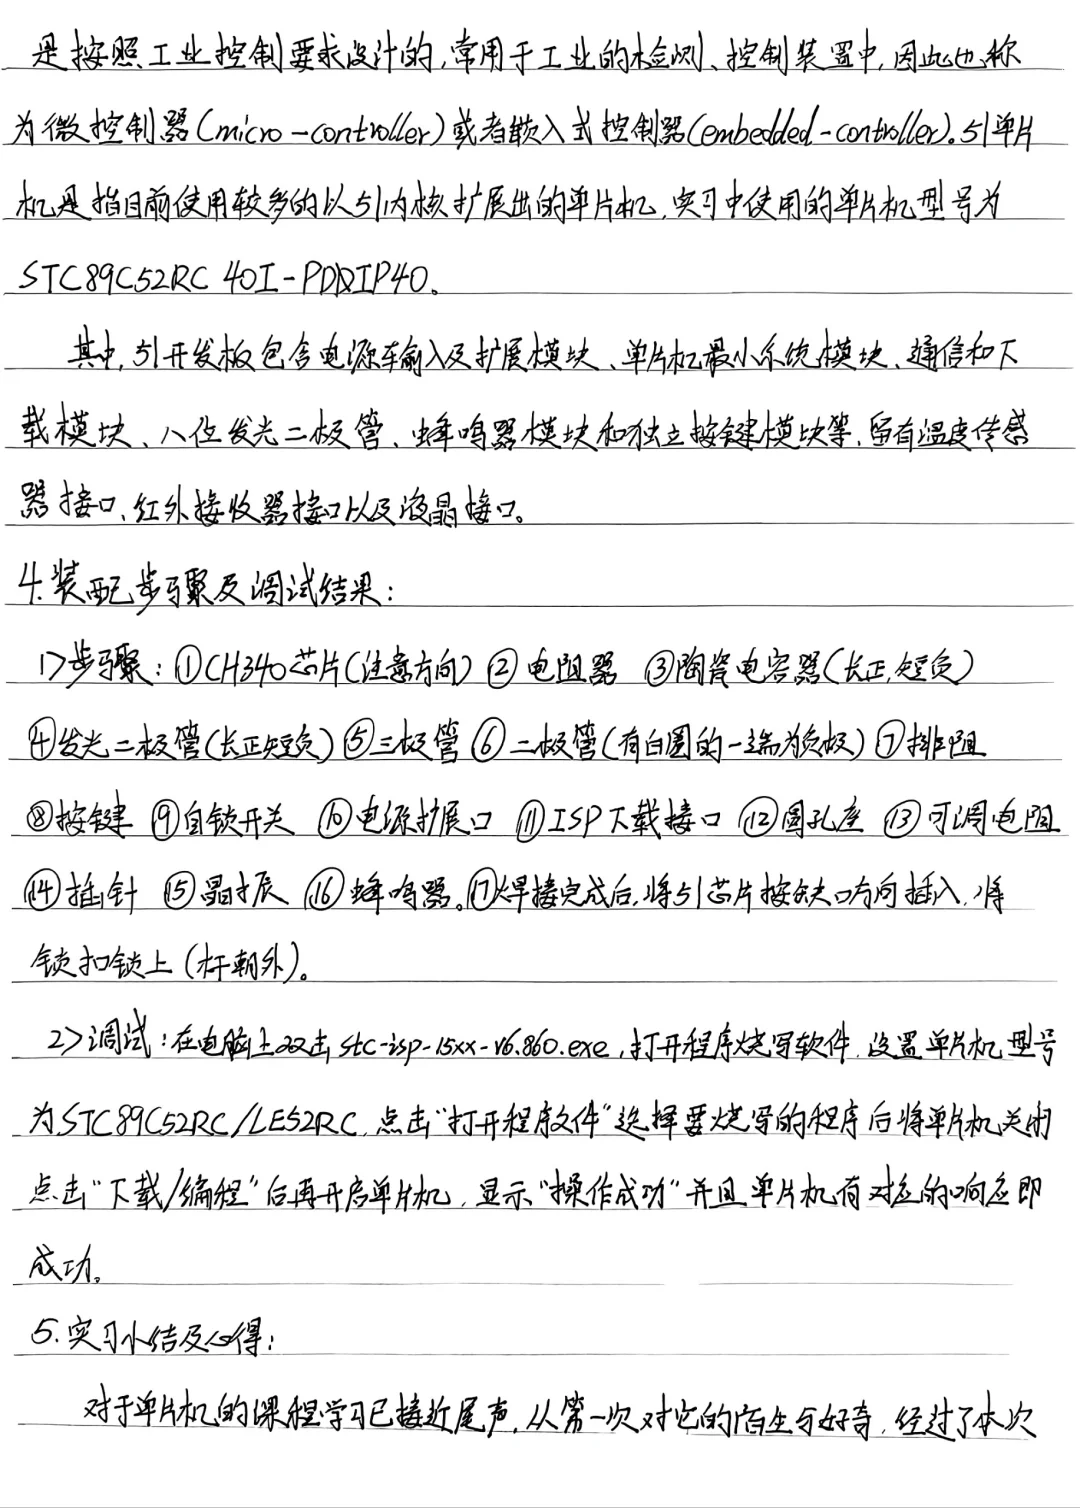 是按照工业控制要求设计的,常用于工业的检测、控制装置中,因此也称
为微控制器(micro-controller)或者嵌入式控制器(embedded-controller)。51单片
机是指目前使用较多的以51内核扩展出的单片机,实习中使用的单片机型号为
STC89C52RC 40I-PDIP40。
其中,51开发板包含电源输入及扩展模块、单片机最小系统模块、通信和下
载模块、八位发光二极管、蜂鸣器模块和独立按键模块等,留有温度传感
器接口、红外接收器接口以及液晶接口。
4.装配步骤及调试结果:
1>步骤:①CH340芯片(注意方向) ②电阻器 ③陶瓷电容器(长正,短负)
④发光二极管(长正短负) ⑤三极管 ⑥二极管(有白圈的一端为负极) ⑦排阻
⑧按键 ⑨自锁开关 ⑩电源扩展口 ⑪ISP下载接口 ⑫圆孔座 ⑬可调电阻
⑭插针 ⑮晶振 ⑯蜂鸣器。⑰焊接完成后,将51芯片按缺口方向插入,将
锁扣锁上(杆朝外)。
2>调试:在电脑上双击stc-isp-15xx-v6.860.exe,打开程序烧写软件,设置单片机型号
为STC89C52RC/LE52RC,点击“打开程序文件”选择要烧写的程序后将单片机关闭
点击“下载/编程”后再开启单片机,显示“操作成功”并且单片机有对应的响应即
成功。
5.实习小结及心得:
对于单片机的课程学习已接近尾声,从第一次对它的陌生与好奇,经过了本次